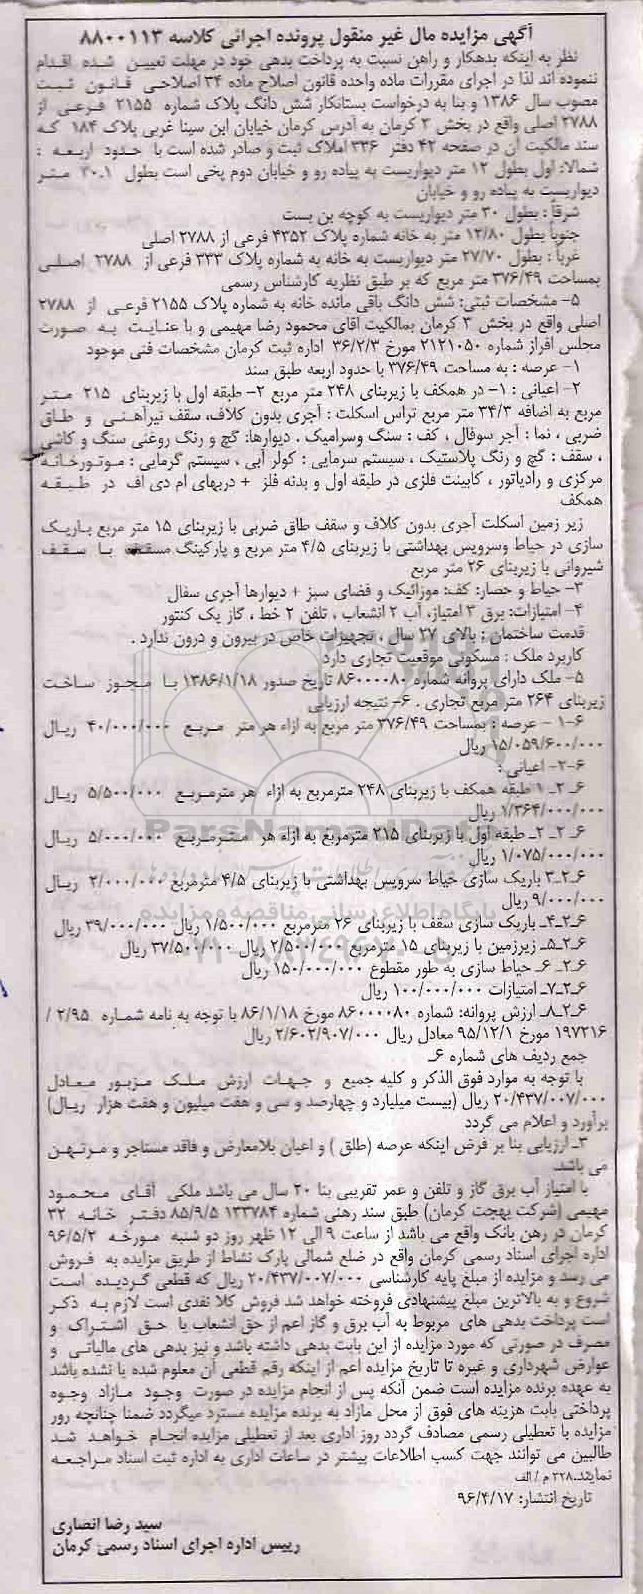 آگهی مزایده مال غیر منقول پرونده اجرائی کلاسه ۸۸۰۰۱۱۳
نظر به اینکه بدهکار و راهن نسبت به پرداخت بدهی خود در مهلت تعیین شده اقدام
ننموده اند لذا در اجرای مقررات ماده واحده قانون اصلاح ماده ۳۴ اصلاحی قانون ثبت
مصوب سال ۱۳۸۶ و بنا به درخواست بستانکار شش دانگ پلاک شماره ۲۱۵۵ فرعی از
۲۷۸۸ اصلی واقع در بخش ۳ کرمان به آدرس کرمان خیابان ابن سینا غربی پلاک ۱۸۴ که
سند مالکیت آن در صفحه ۴۲ دفتر ۳۳۶ املاک ثبت و صادر شده است با حدود اربعه :
شمالا: اول بطول ۱۲ متر دیواریست به پیاده رو و خیابان دوم پخی است بطول ۳۰.۱ متر
دیواریست به پیاده رو و خیابان
شرقاً : بطول ۳۰ متر دیواریست به کوچه بن بست
جنوباً بطول ۱۲/۸۰ متر به خانه شماره پلاک ۴۳۵۲ فرعی از ۲۷۸۸ اصلی
غرباً : بطول ۲۷/۷۰ متر دیواریست به خانه به شماره پلاک ۳۳۳ فرعی از ۲۷۸۸ اصلی
بمساحت ۳۷۶/۴۹ متر مربع که بر طبق نظریه کارشناس رسمی
۵- مشخصات ثبتی: شش دانگ باقی مانده خانه به شماره پلاک ۲۱۵۵ فرعی از ۲۷۸۸
اصلی واقع در بخش ۳ کرمان بمالکیت آقای محمود رضا مهیمی و با عنایت به صورت
مجلس افراز شماره ۲۱۲۱۰۵۰ مورخ ۳۶/۲/۳ اداره ثبت کرمان مشخصات فنی موجود
۱- عرصه : به مساحت ۳۷۶/۴۹ با حدود اربعه طبق سند
۲- اعیانی : ۱- در همکف با زیربنای ۲۴۸ متر مربع ۲- طبقه اول با زیربنای ۲۱۵ متر
مربع به اضافه ۳۴/۳ متر مربع تراس اسکلت : آجری بدون کلاف، سقف تیرآهنی و طاق
ضربی ، نما : آجر سوفال ، کف : سنگ وسرامیک . دیوارها: گچ و رنگ روغنی سنگ و کاشی
، سقف : گچ و رنگ پلاستیک ، سیستم سرمایی : کولر آبی ، سیستم گرمایی : موتورخانه
مرکزی و رادیاتور ، کابینت فلزی در طبقه اول و بدنه فلز + دربهای ام دی اف در طبقه
همکف
زیر زمین اسکلت آجری بدون کلاف و سقف طاق ضربی با زیربنای ۱۵ متر مربع باریک
سازی در حیاط وسرویس بهداشتی با زیربنای ۴/۵ متر مربع و پارکینگ مسقف با سقف
شیروانی با زیربنای ۲۶ متر مربع
۳- حیاط و حصار: کف: موزائیک و فضای سبز + دیوارها آجری سفال
۴- امتیازات: برق ۳ امتیاز، آب ۲ انشعاب ، تلفن ۲ خط ، گاز یک کنتور
قدمت ساختمان : بالای ۲۷ سال ، تجهیزات خاص در بیرون و درون ندارد .
کاربرد ملک : مسکونی موقعیت تجاری دارد
۵- ملک دارای پروانه شماره ۸۶۰۰۰۰۸۰ تاریخ صدور ۱۳۸۶/۱/۱۸ با مجوز ساخت
زیربنای ۲۶۴ متر مربع تجاری . ۶- نتیجه ارزیابی
۶-۱ - عرصه : بمساحت ۳۷۶/۴۹ متر مربع به ازاء هر متر مربع ۴۰/۰۰۰/۰۰۰ ریال
۱۵/۰۵۹/۶۰۰/۰۰۰ ریال
۶-۲- اعیانی :
۶_۲_۱ طبقه همکف با زیربنای ۲۴۸ مترمربع به ازاء هر مترمربع ۵/۵۰۰/۰۰۰ ریال
۱/۳۶۴/۰۰۰/۰۰۰ ریال
۶_۲_۲_ طبقه اول با زیربنای ۲۱۵ مترمربع به ازاء هر مترمربع ۵/۰۰۰/۰۰۰ ریال
۱/۰۷۵/۰۰۰/۰۰۰ ریال
۶_۲_۳ باریک سازی حیاط سرویس بهداشتی با زیربنای ۴/۵ مترمربع ۲/۰۰۰/۰۰۰ ریال
۹/۰۰۰/۰۰۰ ریال
۶_۲_۴_ باریک سازی سقف با زیربنای ۲۶ مترمربع ۱/۵۰۰/۰۰۰ ریال ۳۹/۰۰۰/۰۰۰ ریال
۶_۲_۵_ زیرزمین با زیربنای ۱۵ مترمربع ۲/۵۰۰/۰۰۰ ریال ۳۷/۵۰۰/۰۰۰ ریال
۶_۲_ ۶_ حیاط سازی به طور مقطوع ۱۵۰/۰۰۰/۰۰۰ ریال
۶_۲_۷_ امتیازات ۱۰۰/۰۰۰/۰۰۰ ریال
۶_۲_۸_ ارزش پروانه: شماره ۸۶۰۰۰۰۸۰ مورخ ۸۶/۱/۱۸ با توجه به نامه شماره ۲/۹۵ /
۱۹۷۲۱۶ مورخ ۹۵/۱۲/۱ معادل ریال ۲/۶۰۲/۹۰۷/۰۰۰ ریال
جمع ردیف های شماره ۶_
با توجه به موارد فوق الذکر و کلیه جمیع و جهات ارزش ملک مزبور معادل
۲۰/۴۳۷/۰۰۷/۰۰۰ ریال (بیست میلیارد و چهارصد و سی و هفت میلیون و هفت هزار ریال)
برآورد و اعلام می گردد
۳_ ارزیابی بنا بر فرض اینکه عرصه (طلق ) و اعیان بلامعارض و فاقد مستاجر و مرتهن
می باشد.
با امتیاز آب برق گاز و تلفن و عمر تقریبی بنا ۲۰ سال می باشد ملکی آقای محمود
مهیمی (شرکت بهجت کرمان) طبق سند رهنی شماره ۱۳۳۷۸۴ ۸۵/۹/۵ دفتر خانه ۳۲
کرمان در رهن بانک واقع می باشد از ساعت ۹ الی ۱۲ ظهر روز دو شنبه مورخه ۹۶/۵/۲
اداره اجرای اسناد رسمی کرمان واقع در ضلع شمالی پارک نشاط از طریق مزایده به فروش
می رسد و مزایده از مبلغ پایه کارشناسی ۲۰/۴۳۷/۰۰۷/۰۰۰ ریال که قطعی گردیده است
شروع و به بالاترین مبلغ پیشنهادی فروخته خواهد شد فروش کلا نقدی است لازم به ذکر
است پرداخت بدهی های مربوط به آب برق و گاز اعم از حق انشعاب یا حق اشتراک و
مصرف در صورتی که مورد مزایده از این بابت بدهی داشته باشد و نیز بدهی های مالیاتی و
عوارض شهرداری و غیره تا تاریخ مزایده اعم از اینکه رقم قطعی آن معلوم شده یا نشده باشد
به عهده برنده مزایده است ضمن آنکه پس از انجام مزایده در صورت وجود مازاد وجوه
پرداختی بابت هزینه های فوق از محل مازاد به برنده مزایده مسترد میگردد ضمنا چنانچه روز
مزایده با تعطیلی رسمی مصادف گردد روز اداری بعد از تعطیلی مزایده انجام خواهد شد
طالبین می توانند جهت کسب اطلاعات بیشتر در ساعات اداری به اداره ثبت اسناد مراجعه
نمایند.۳۲۸ م / الف
تاریخ انتشار: ۹۶/۴/۱۷
سید رضا انصاری
رییس اداره اجرای اسناد رسمی کرمان